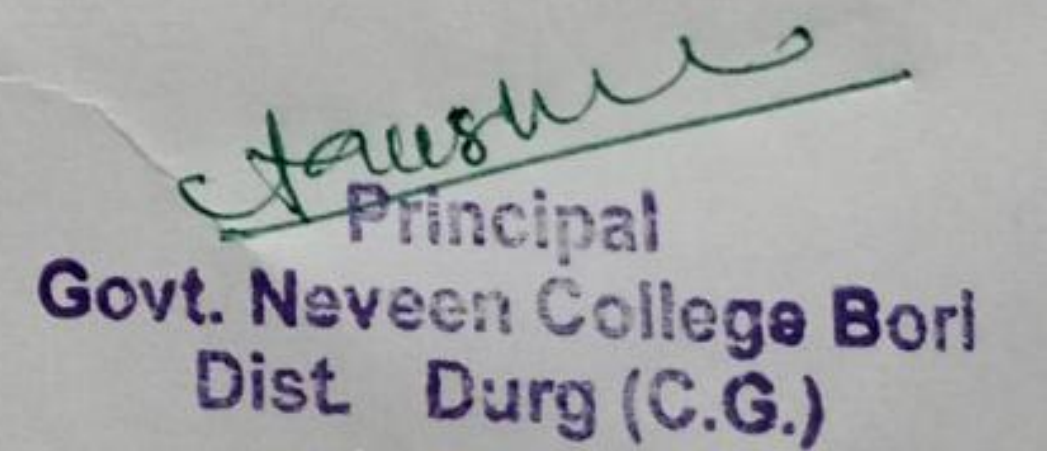 Principal
Govt. Naveen College Bori
Dist. Durg (C.G.)